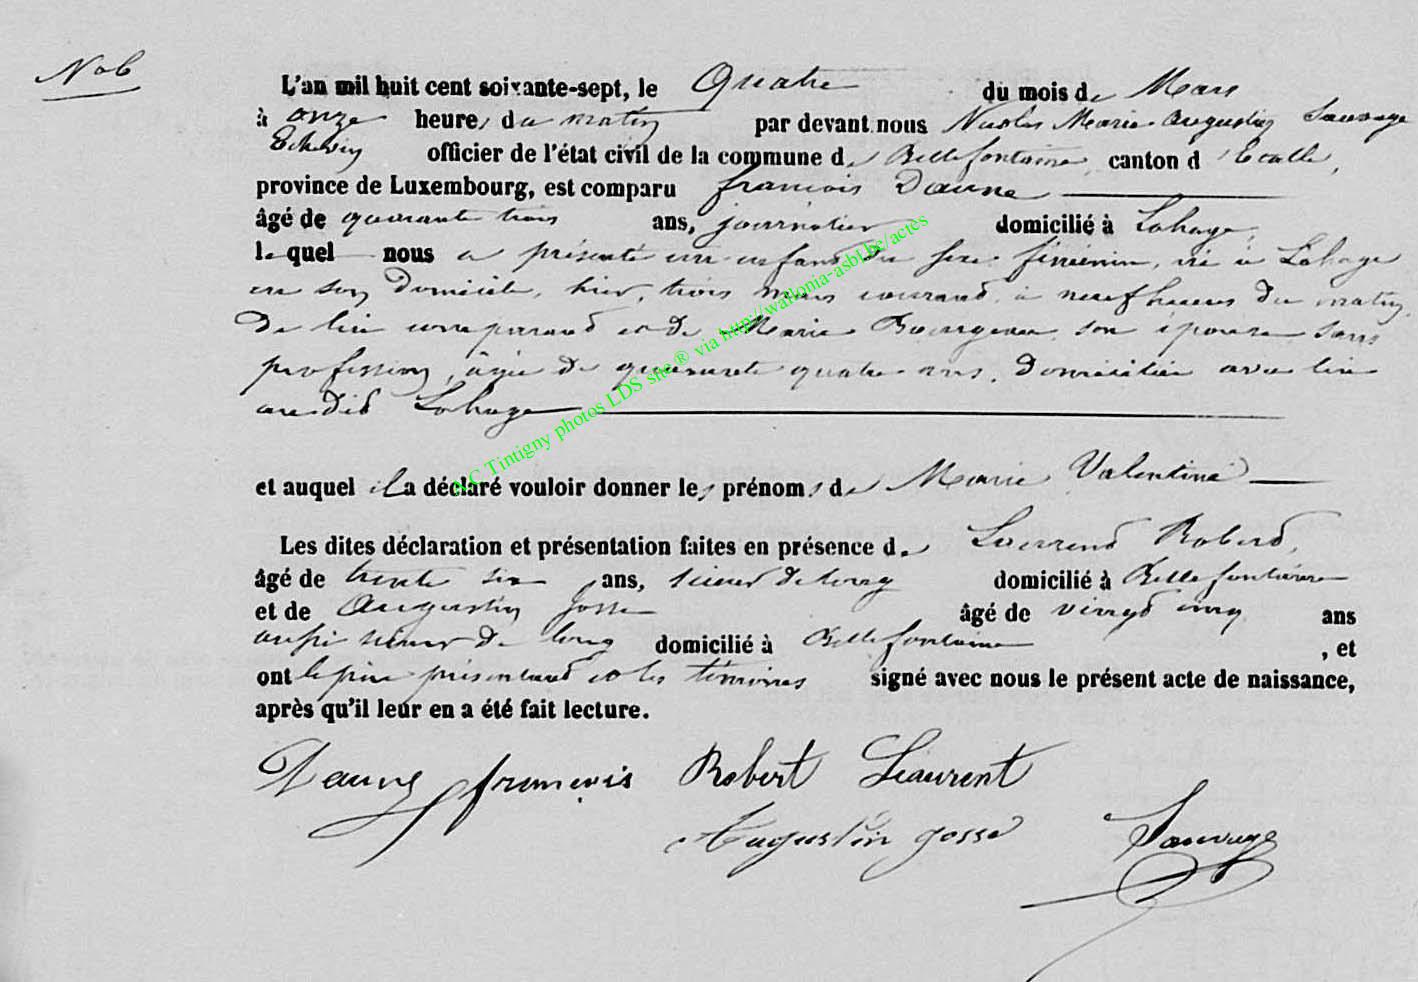 N° 6
L'an mil huit cent soixante-sept, le Quatre du mois de Mars
à onze heures du matin par devant nous Nicolas Marie Augustin Sauvage
Echevin officier de l'état civil de la commune de Bellefontaine, canton d'Etalle,
province de Luxembourg, est comparu françois Daune
âgé de quarante trois ans, journalier domicilié à Lahage,
lequel nous a présenté un enfant du sexe féminin, né à Lahage
en son Domicile, hier, trois mars courant, à neuf heures du matin,
De lui comparant et de Marie Bourgeau, son épouse sans
profession, âgée de quarante quatre ans, Domiciliée avec lui
au dit Lahage
et auquel il a déclaré vouloir donner les prénoms de Marie Valentine
Les dites déclaration et présentation faites en présence de Laurent Robert,
âgé de trente six ans, scieur de long domicilié à Bellefontaine
et de Augustin Josse âgé de vingt cinq ans
aussi scieur de long domicilié à Bellefontaine, et
ont le père présentant et les témoins signé avec nous le présent acte de naissance,
après qu'il leur en a été fait lecture.
Daune françois Robert Laurent
Augustin Josse Sauvage
A.C Tintigny photos LDS site ® via http://wallonia-asbl.be/actes